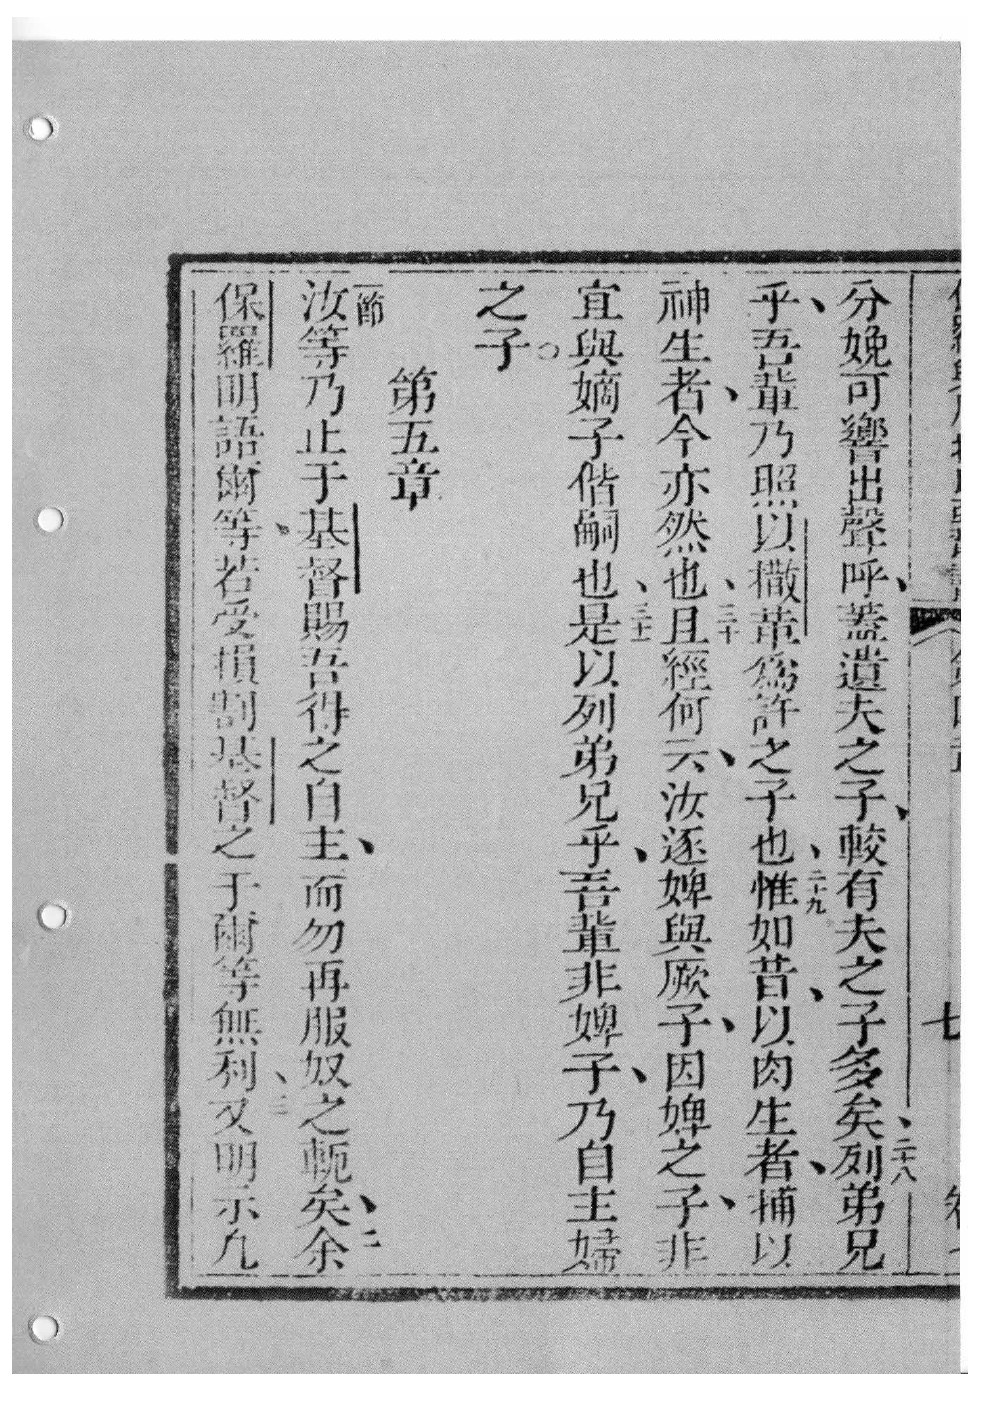 七
分娩可響出聲呼、蓋遺夫之子、較有夫之子多矣、二十八列弟兄
乎、吾輩乃照以撒革為許之子也、二十九惟如昔、以肉生者、捕以
神生者、今亦然也、三十且經何云、汝逐婢與厥子、因婢之子、非
宜與嫡子偕嗣也、三十一是以列弟兄乎、吾輩非婢子、乃自主婦
之子。
第五章
一節汝等乃止于基督賜吾得之自主、而勿再服奴之軛矣、二余
保羅明語爾等、若受損割基督之于爾等無利、三又明示凢